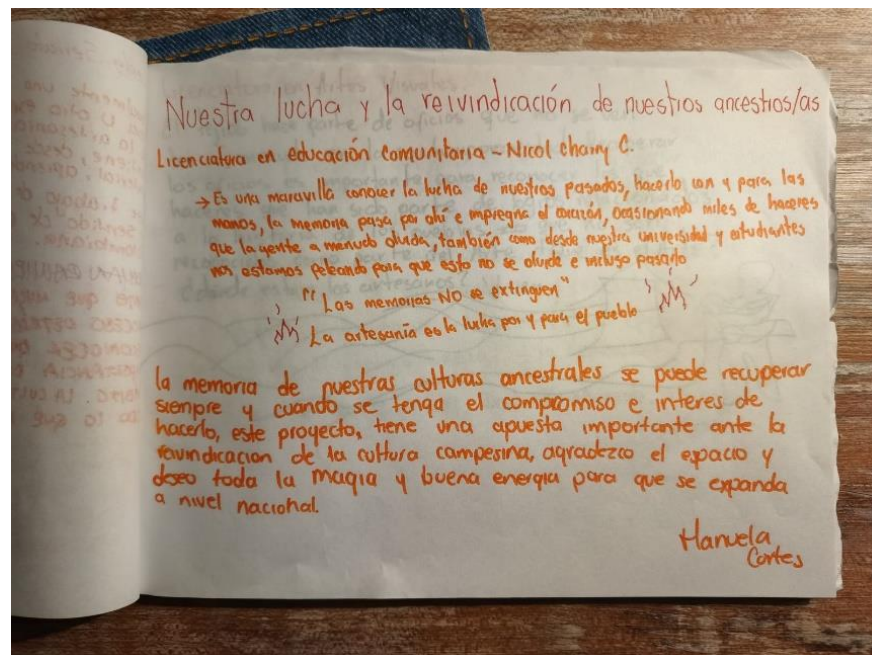 Nuestra lucha y la reivindicación de nuestros ancestros/as
Licenciatura en educación Comunitaria ~ Nicol chamy C.
→ Es una maravilla conocer la lucha de nuestros pasados, hacerlo con y para las
manos, la memoria pasa por ahí e impregna el corazón, ocasionando miles de haceres
que la gente a menudo olvida, también como desde nuestra universidad y estudiantes
nos estamos peleando para que esto no se olvide e incluso pasarlo
"Las memorias NO se extinguen"
La artesanía es la lucha por y para el pueblo
la memoria de nuestras culturas ancestrales se puede recuperar
siempre y cuando se tenga el compromiso e interes de
hacerlo, este proyecto, tiene una apuesta importante ante la
reivindicacion de la cultura campesina, agradezco el espacio y
deseo toda la magia y buena energia para que se expanda
a nivel nacional.
Manuela
Cortes